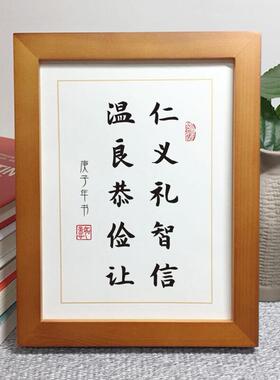 仁义礼智信
温良恭俭让
庚子年书